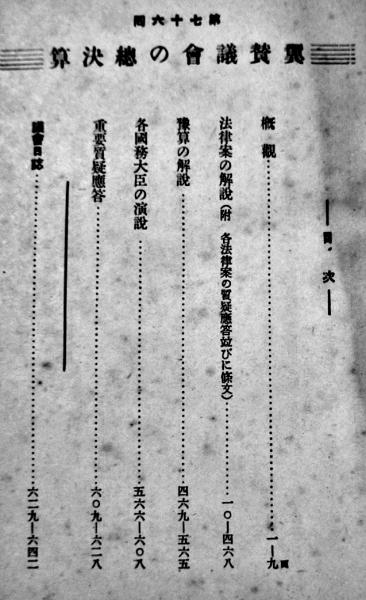 第七十六回
翼賛議會の總決算
目、次
概觀……一—九頁
法律案の解説（附 各法律案の質疑應答竝びに條文）……一〇—四六八
豫算の解説……四六九—五六五
各國務大臣の演説……五六六—六〇八
重要質疑應答……六〇九—六二八
議會日誌……六二九—六四二